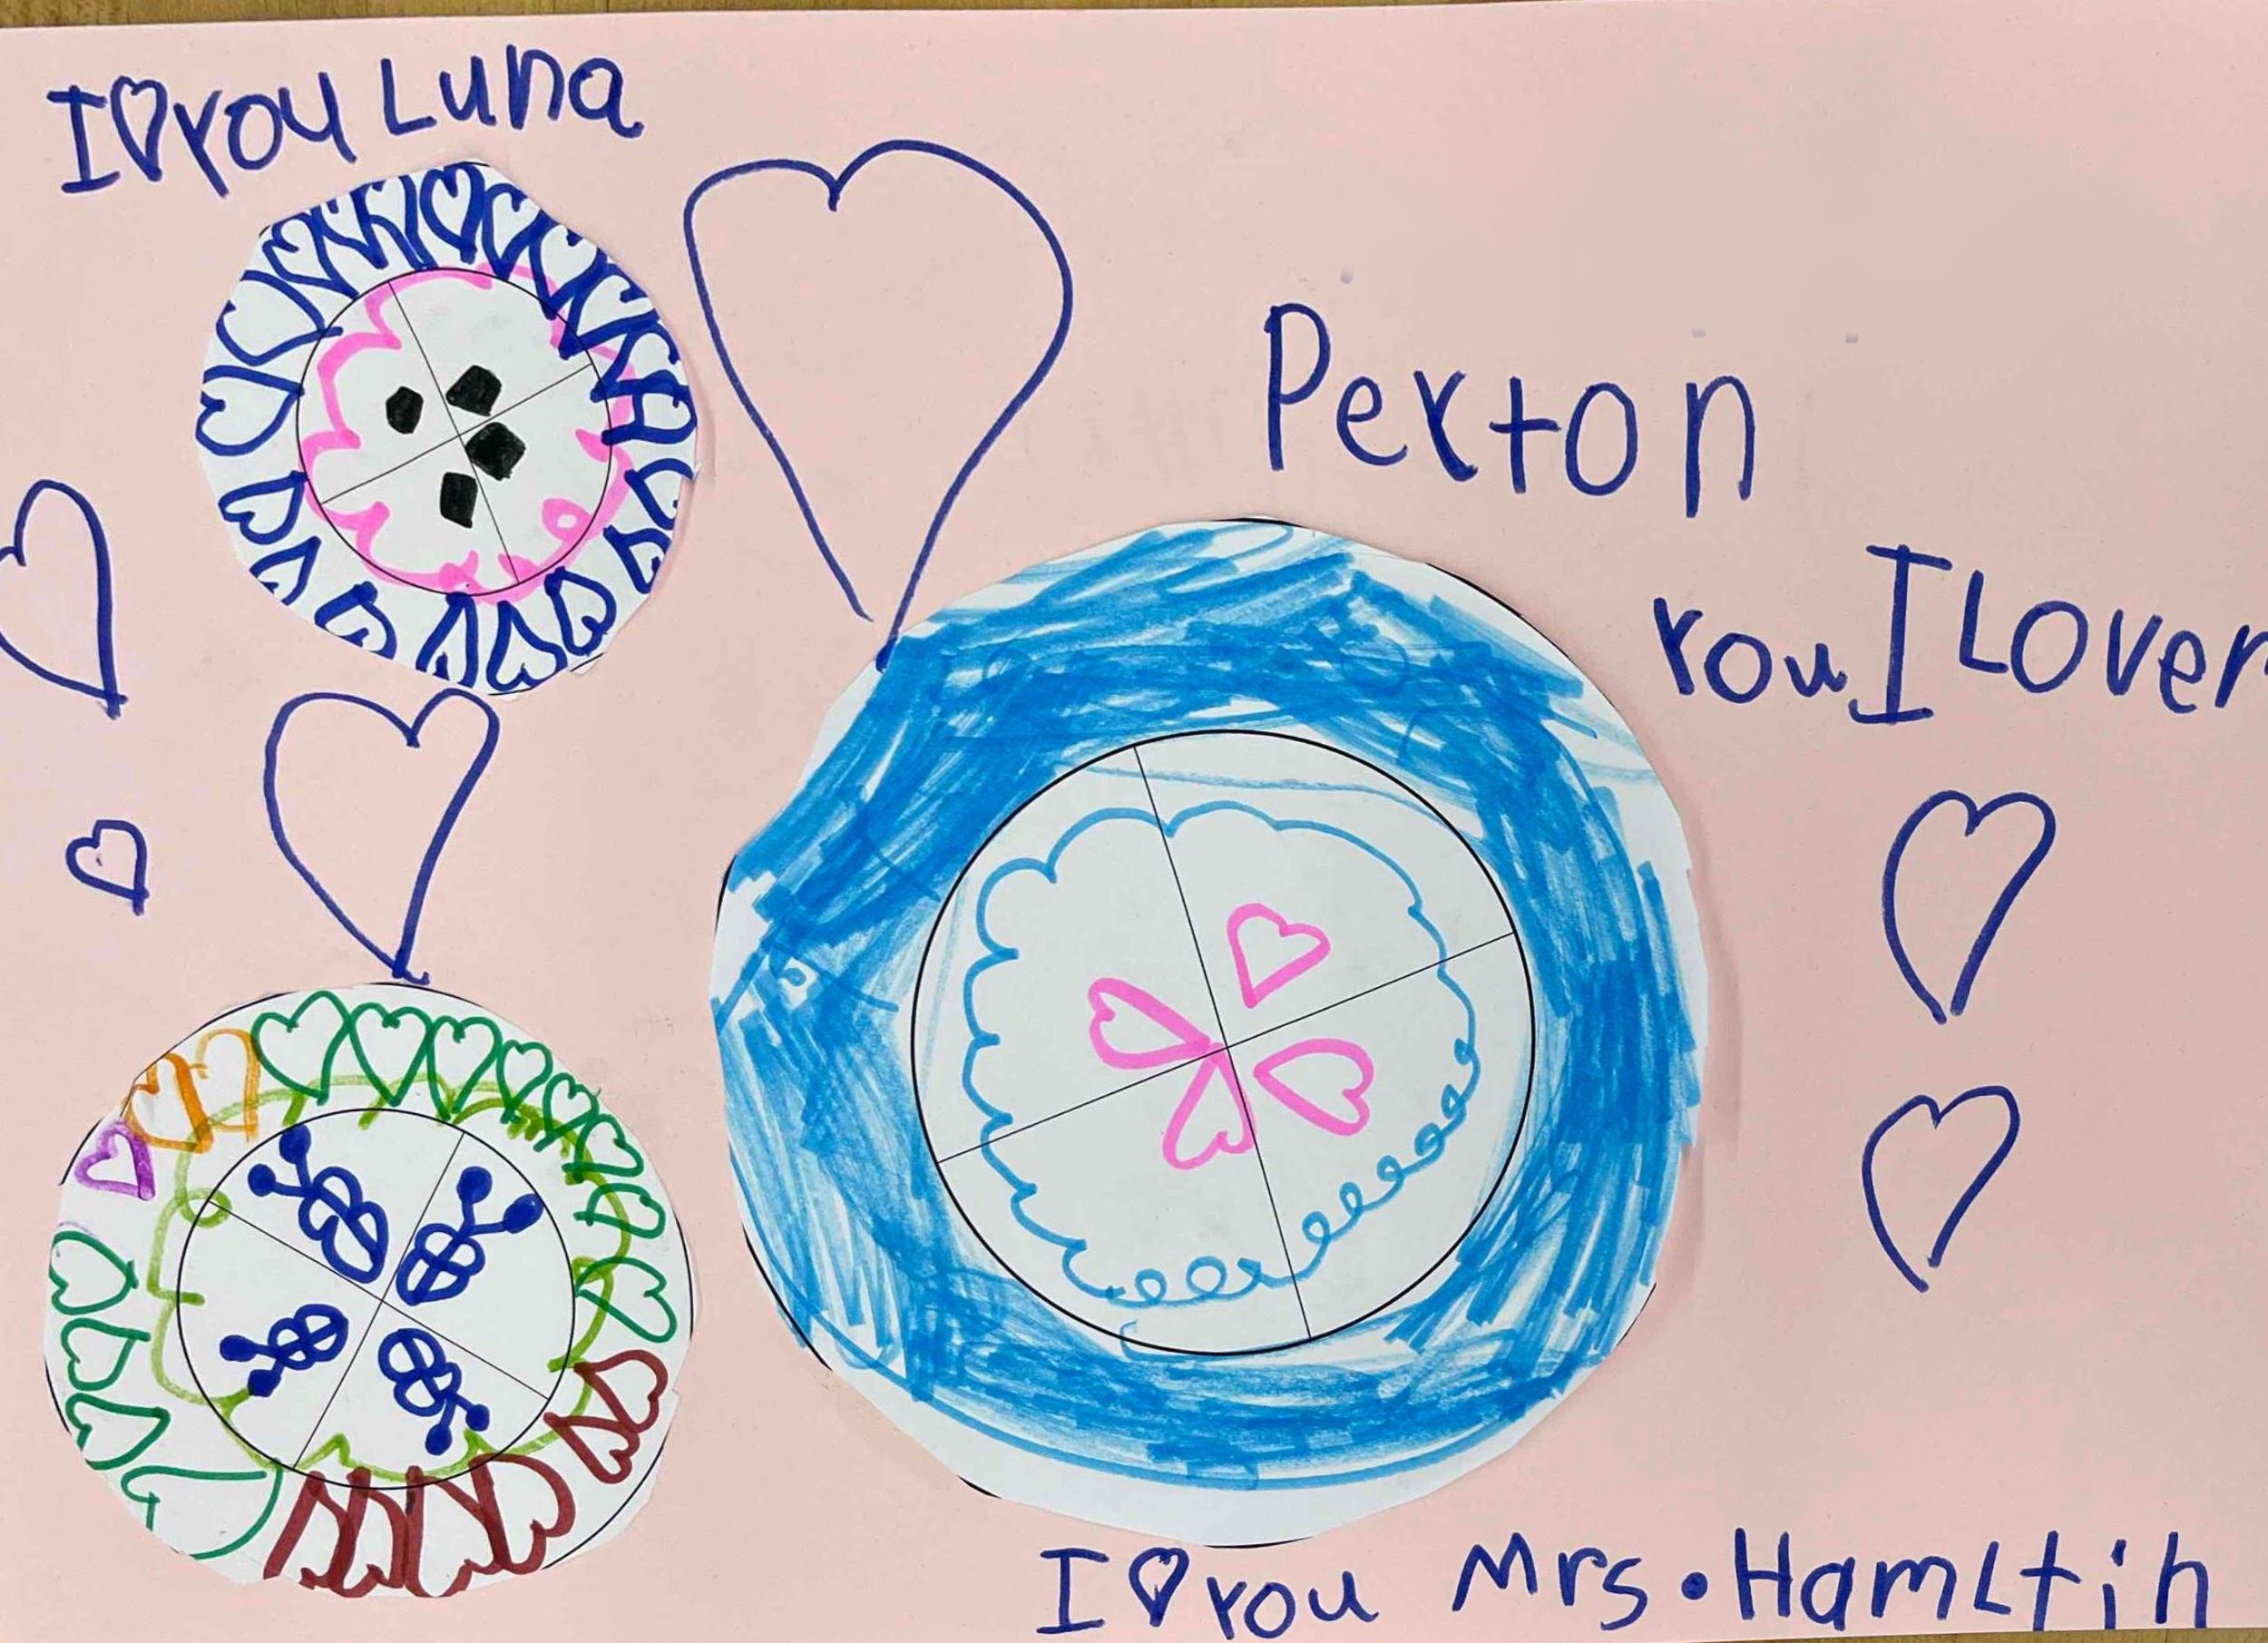 I♡you Luna
Peyton
you I Lover
I♡you Mrs. Hamltin